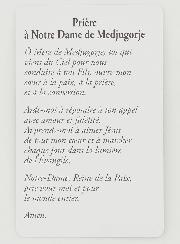 Prière
à Notre Dame de Medjugorje
Ô Mère de Medjugorje, toi qui
viens du Ciel pour nous
conduire à ton Fils, ouvre mon
cœur à la paix, à la prière,
et à la conversion.
Aide-moi à répondre à ton appel
avec amour et fidélité.
Apprends-moi à aimer Jésus
de tout mon cœur et à marcher
chaque jour dans la lumière
de l'Évangile.
Notre-Dame, Reine de la Paix,
prie pour moi et pour
le monde entier.
Amen.